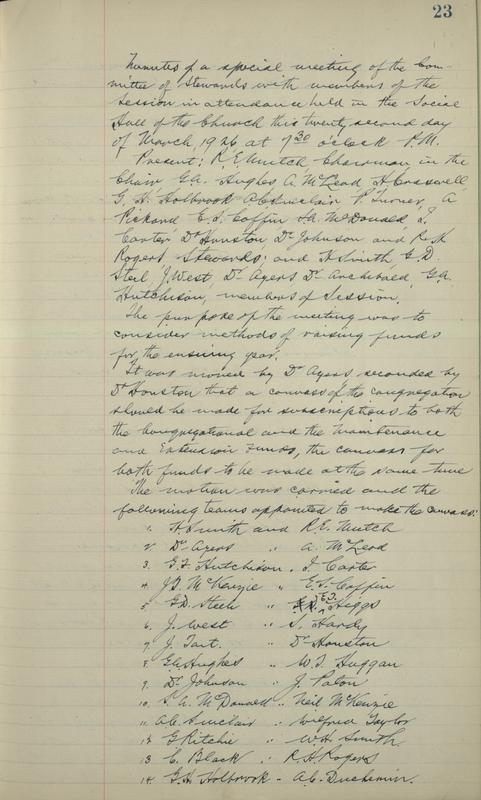 23
Minutes of a special meeting of the Com-
mittee of Stewards with members of the
Session in attendance held in the Social
Hall of the Church this twenty second day
of March, 1926 at 7 30 o'clock P.M.
Present: R.E. Mutch Chairman in the
Chair G.A. Hughes A. McLeod, H. Crasswell
G.H. Holbrook A.C. Sinclair P. Turner, A
Pickard E.T. Coffin McDonald J.
Carter Dr Houston, Dr Johnson and R.H
Rogers Stewards, and H Smith G.D.
Steel, J. West, Dr Ayers Dr Archibald, G.A.
Hutchison, members of Session.
The purpose of the meeting was to
consider methods of raising funds
for the ensuing year.
It was moved by Dr Ayers seconded by
Dr Houston that a canvass of the congregation
should be made for subscriptions to both
the Congregational and the Maintenance
and Extension Funds, the canvass for
both funds to be made at the same time
The motion was carried and the
following teams appointed to make the canvass:
1. H. Smith and R.E. Mutch
2. Dr Ayers " A. McLeod
3. Hutchison, J. Carter
4 McKenzie " E.T. Coffin
5 G.D. Steele " Higgs
6. J. West " S. Hardy
7. J. Tait. " Dr Houston
8. G.A. Hughes " W.J. Huggan
9. Dr Johnson " J. Paton
10. McDonald " Neil McKenzie
11. A.C. Sinclair " Wilfred Taylor
12 G Ritchie " W.H. Smith
13 C. Black " R.H. Rogers
14. G.H. Holbrook - A.C. Duchemin.